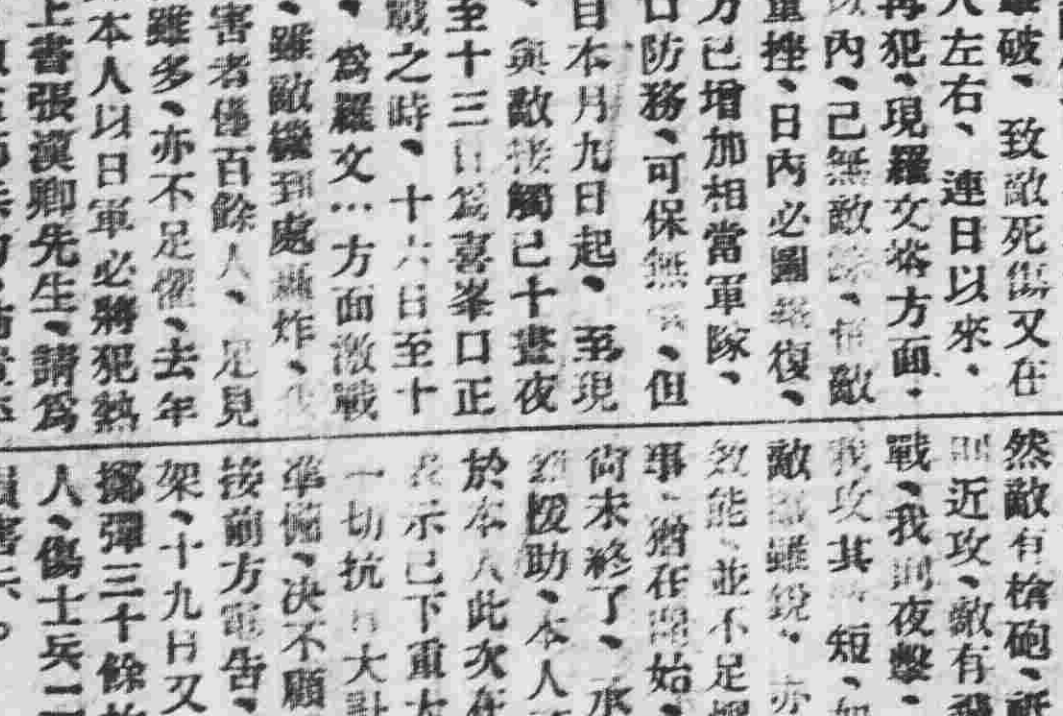 擊破、致敵死傷又在
人左右、連日以來、
再犯、現羅文塔方面、
以內、已無敵踪、惟敵
重挫、日內必圖報復、
方已增加相當軍隊、
口防務、可保無、但
自本月九日起、至現
、與敵接觸已十晝夜
至十三日爲喜峯口正
戰之時、十六日至十
、爲羅文…方面激戰
、雖敵機到處轟炸、
害者僅百餘人、足見
雖多、亦不足懼、去年
本人以日軍必將犯熱
上書張漢卿先生、請爲
然敵有槍砲、
則近攻、敵有
戰、我則夜擊、
我攻其所短、如
敵器雖銳、亦
效能、並不足
事、猶在開始、
尙未終了、承
援助、本人
於本人此次在
表示已下重大
一切抗日大計
準備、決不顧
接前方電告、
架、十九日又
擲彈三十餘枚
人、傷士兵二
損害云。